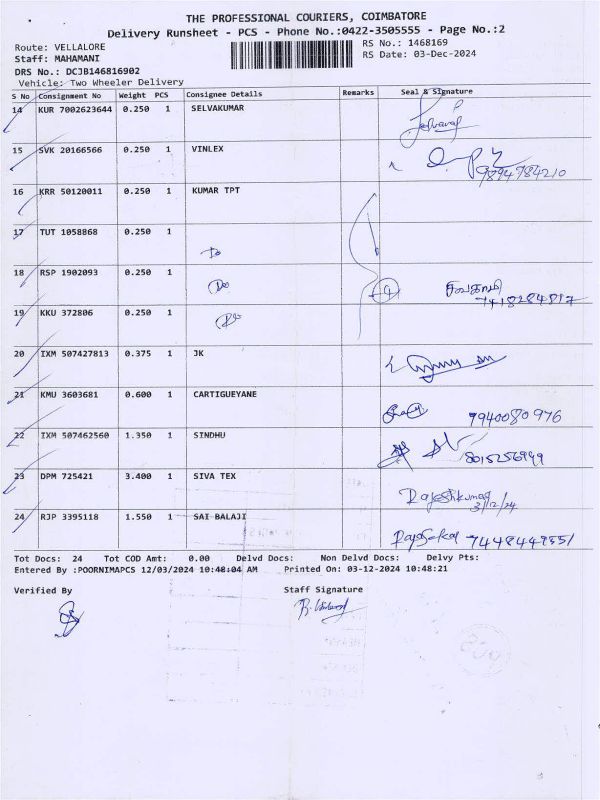 THE PROFESSIONAL COURIERS, COIMBATORE
Delivery Runsheet - PCS - Phone No.:0422-3505555 - Page No.:2
Route: VELLALORE
RS No.: 1468169
Staff: MAHAMANI
RS Date: 03-Dec-2024
DRS No.: DCJB146816902
Vehicle: Two Wheeler Delivery
S No Consignment No Weight PCS Consignee Details Remarks Seal & Signature
14 KUR 7002623644 0.250 1 SELVAKUMAR
15 SVK 20166566 0.250 1 VINLEX
9894784210
16 KRR 50120011 0.250 1 KUMAR TPT
17 TUT 1058868 0.250 1
Do
18 RSP 1902093 0.250 1
Do 4 சிவகாமி
7418284817
19 KKU 372806 0.250 1
Do
20 IXM 507427813 0.375 1 JK
21 KMU 3603681 0.600 1 CARTIGUEYANE
7940080976
22 IXM 507462560 1.350 1 SINDHU
8015256949
23 DPM 725421 3.400 1 SIVA TEX
Rajeshkumar
3/12/24
24 RJP 3395118 1.550 1 SAI BALAJI
Rajasekar 7448449551
Tot Docs: 24 Tot COD Amt: 0.00 Delvd Docs: Non Delvd Docs: Delvy Pts:
Entered By :POORNIMAPCS 12/03/2024 10:48:04 AM Printed On: 03-12-2024 10:48:21
Verified By Staff Signature